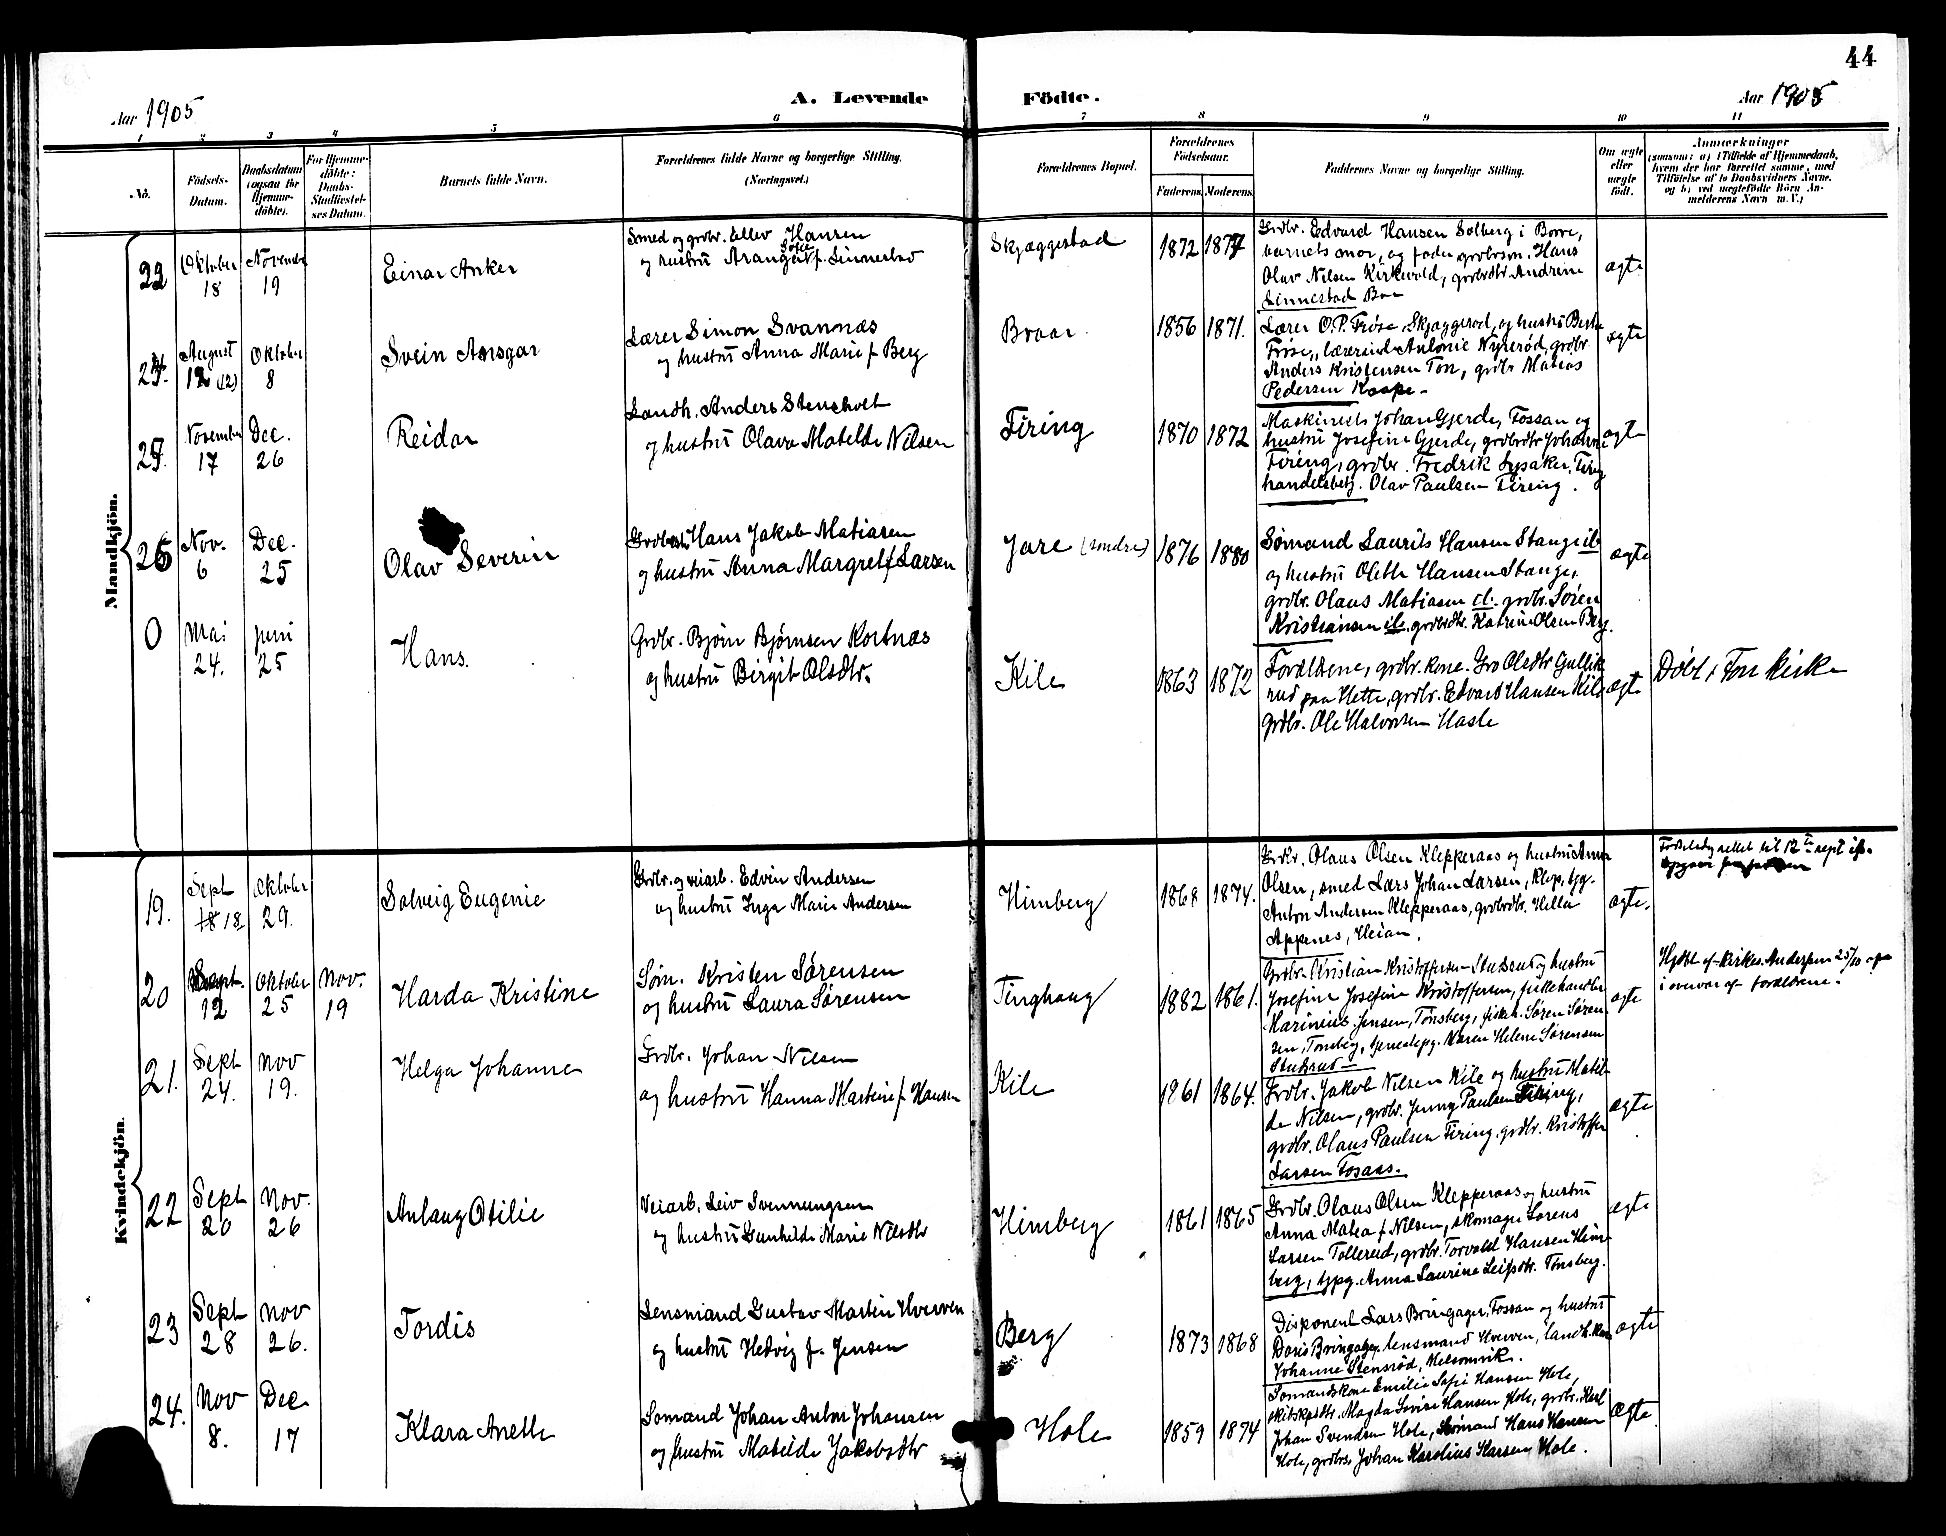 44
Aar 1905
A. Levende Födte.
Aar 1905
1 2 3 4 5 6 7 8 9 10 11
No.
Födsels-
Datum.
Daabsdatum
(ogsaa for
Hjemme-
döbte).
For Hjemme-
döbte:
Daabs-
Stadfæstel-
ses Datum.
Barnets fulde Navn.
Forældrenes fulde Navne og borgerlige Stilling.
(Næringsvei.)
Forældrenes Bopæl.
Forældrenes
Födselsaar.
Faderens. Moderens.
Faddernes Navne og borgerlige Stilling.
Om ægte
eller
uægte
født.
Anmærkninger
(saasom: a) i Tilfælde af Hjemmedaab,
hvem der har forrettet samme, med
Tilföielse af to Daabsvidners Navne,
og b) ved uægtefödte Börn An-
melderens Navn m. V.)
Mandkjön.
22
Oktober
18
November
19
Einar Anker
Smed og grdbr. Ellev Hansen
og hustru Arangert Sofie f. Linnestad
Skjæggestad
1872 1877
Grdbr. Edvard Hansen Solberg i Borre,
barnets mor, og fader, grdbrsøn. Hans
Olav Nilsen Kirkevold, grdbrdtr Andrine
Linnestad Boe
ægte
24.
August
12 (12)
Oktober
8
Svein Ansgar
Lærer Simon Svannæs
og hustru Anna Marie f. Berg
Braar
1856 1871.
Lærer O. P. Frøse, Skjæggerod, og hustru Berthe
Frøse, lærerind Antonie Nyrerød, grdbr
Anders Kristensen Ton, grdbr Matias
Pedersen Kaape.
ægte
25.
November
17
Dec.
26
Reidar
Landh. Anders Stensholt
og hustru Olava Matilde Nilsen
Firing
1870 1872
Maskinist Johan Gjerde, Fossan og
hustru Josefine Gjerde, grdbrdtr Johanne
Firing, grdbr. Fredrik Lysaker, Firing
handelsbetj. Olav Paulsen Firing.
ægte
26
Nov.
6
Dec.
25
Olav Severin
Grdbr. Hans Jakob Matiasen
og hustru Anna Margret f. Larsen
Jare (søndre)
1876 1880
Sømand Laurits Hansen Stange ib
og hustru Olette Hansen Stange,
grdbr. Olaus Matiasen ib. grdbr. Søren
Kristiansen ib. grdbrdtr. Katrine Olsen Berg.
ægte
0
Mai
24.
Juni
25
Hans.
Grdbr. Bjørn Bjørnsen Kortnæs
og hustru Birgit Olsdtr.
Kile
1863 1872
Foreldrene, grdbr. kone. Gro Olsdtr Gullik
rud paa Hette, grdbr. Edvard Hansen Kile
grdbr. Ole Halvorsen Hasle
ægte
Døbt i Fon kirke
Kvindekjön.
19.
Sept
18 18
Oktober
29.
Solveig Eugenie
Grdbr. og veiarb. Edvin Andersen
og hustru Inga Marie Andersen
Himberg
1868 1874.
Grdbr. Olaus Olsen Klepperaas og hustru Anna
Olsen, smed Lars Johan Larsen, Klop, ipg.
Anton Andersen Klepperaas, grdbrdtr. Hilda
Appenes, Heian.
ægte.
Fødselsdg rettet til 12te sept if.
20
Sept.
12
Oktober
25
Nov.
19
Harda Kristine
Søm. Kristen Sørensen
og hustru Laura Sørensen
Tinghaug
1882 1861.
Grdbr. Kristian Kristoffersen Stutsrud og hustru
Josefine Josefine Kristoffersen, fiskehandler
Marinius Jensen, Tønsberg, fiskh. Søren Søren
sen, Tønsberg, tjenestepg. Maren Helene Sørensen
Stutsrud
ægte
Hjdbt af kirkes. Andersen 25/10
i overvær af foreldrene.
21.
Sept
24.
Nov
19.
Helga Johanne
Grdbr. Johan Nilsen
og hustru Hanna Martine f. Hansen
Kile
1861 1864.
Grdbr. Jakob Nilsen Kile og hustru Matil
de Nilsen, grdbr. Jung Paulsen Firing,
grdbr. Olaus Paulsen Firing, grdbr. Kristoffer
Larsen Fosaas.
ægte
22
Sept
20
Nov.
26
Aulaug Otilie
Veiarb. Leiv Svennungsen
og hustru Gunhilde Marie Nilsdtr
Himberg
1861 1865
Grdbr. Olaus Olsen Klepperaas og hustru
Anna Matea f. Nilsen, skomager Lorens
Larsen Tollerud, grdbr. Torvald Hansen Him
berg, tjpg. Anna Laurine Leifsdtr. Tønsberg.
ægte
23
Sept
28
Nov
26.
Tordis
Lensmand Gustav Martin Hverven
og hustru Hedvig f. Jensen
Berg
1873 1868
Disponent Lars Bringager, Fossan og hustru
Doris Bringager, lensmand Hverven, landh. kone
Johanne Stensrød, Melsomvik.
ægte
24.
Nov
8.
Dec
17
Klara Anette
Sømand Johan Anton Johansen
og hustru Matilde Jakobsdtr
Hole
1859 1874
Sømandskone Emilie Sofie Hansen Hole,
skibskptdtr. Magda Lovise Hansen Hole, grdbr. Karl
Johan Svendsen Hole, Sømand Hans Hansen
Hole, grdbrs. Johan Karolius Hansen Hole.
ægte.